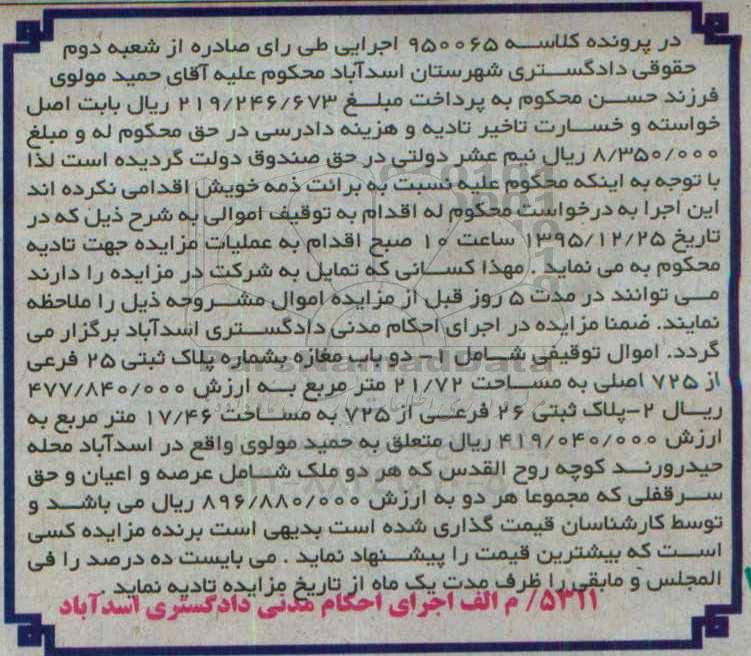 در پرونده کلاسه ۹۵۰۰۶۵ اجرایی طی رای صادره از شعبه دوم
حقوقی دادگستری شهرستان اسدآباد محکوم علیه آقای حمید مولوی
فرزند حسن محکوم به پرداخت مبلغ ۲۱۹/۲۴۶/۶۷۳ ریال بابت اصل
خواسته و خسارت تاخیر تادیه و هزینه دادرسی در حق محکوم له و مبلغ
۸/۳۵۰/۰۰۰ ریال نیم عشر دولتی در حق صندوق دولت گردیده است لذا
با توجه به اینکه محکوم علیه نسبت به برائت ذمه خویش اقدامی نکرده اند
این اجرا به درخواست محکوم له اقدام به توقیف اموالی به شرح ذیل که در
تاریخ ۱۳۹۵/۱۲/۲۵ ساعت ۱۰ صبح اقدام به عملیات مزایده جهت تادیه
محکوم به می نماید . مهذا کسانی که تمایل به شرکت در مزایده را دارند
می توانند در مدت ۵ روز قبل از مزایده اموال مشروحه ذیل را ملاحظه
نمایند. ضمنا مزایده در اجرای احکام مدنی دادگستری اسدآباد برگزار می
گردد. اموال توقیفی شامل ۱- دو باب مغازه بشماره پلاک ثبتی ۲۵ فرعی
از ۷۲۵ اصلی به مساحت ۲۱/۷۲ متر مربع به ارزش ۴۷۷/۸۴۰/۰۰۰
ریال ۲-پلاک ثبتی ۲۶ فرعی از ۷۲۵ به مساحت ۱۷/۴۶ متر مربع به
ارزش ۴۱۹/۰۴۰/۰۰۰ ریال متعلق به حمید مولوی واقع در اسدآباد محله
حیدرورند کوچه روح القدس که هر دو ملک شامل عرصه و اعیان و حق
سرقفلی که مجموعا هر دو به ارزش ۸۹۶/۸۸۰/۰۰۰ ریال می باشد و
توسط کارشناسان قیمت گذاری شده است بدیهی است برنده مزایده کسی
است که بیشترین قیمت را پیشنهاد نماید . می بایست ده درصد را فی
المجلس و مابقی را ظرف مدت یک ماه از تاریخ مزایده تادیه نماید .
۵۳۱۱/ م الف اجرای احکام مدنی دادگستری اسدآباد
ParsNamadData